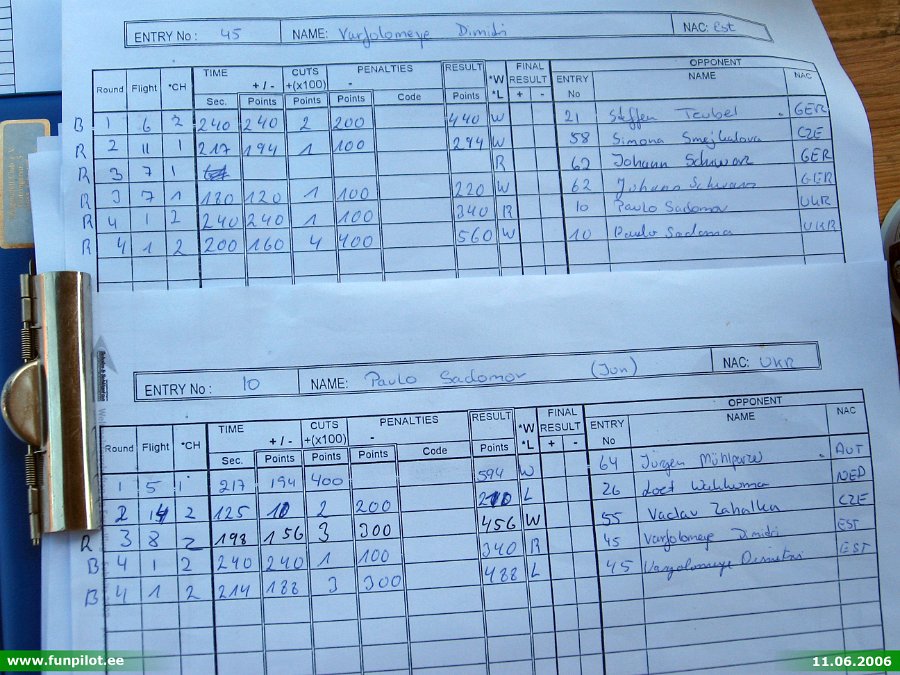 ENTRY No : 45 NAME: Varfolomeye Dimidri NAC: Est
TIME CUTS PENALTIES RESULT *W FINAL OPPONENT
Round Flight *CH + / - +(x100) - *L RESULT ENTRY NAME NAC
Sec. Points Points Points Code Points + - No
B 1 6 2 240 240 2 200 440 W 21 Steffen Teubel GER
R 2 11 1 217 194 1 100 294 W 58 Simona Smejkalova CZE
R 3 7 1 R 62 Johann Schwarz GER
R 3 7 1 180 120 1 100 220 W 62 Johann Schwarz GER
R 4 1 2 240 240 1 100 340 R 10 Pavlo Sadomov UKR
R 4 1 2 200 160 4 400 560 W 10 Pavlo Sadomov UKR
ENTRY No : 10 NAME: Pavlo Sadomov (Jun) NAC: UKR
TIME CUTS PENALTIES RESULT *W FINAL OPPONENT
Round Flight *CH + / - +(x100) - *L RESULT ENTRY NAME NAC
Sec. Points Points Points Code Points + - No
1 5 1 217 194 400 594 W 64 Jürgen AUT
2 14 2 125 2 200 L 26 Loet NED
R 3 8 2 198 156 3 300 456 W 55 Vaclav Zahalka CZE
B 4 1 2 240 240 1 100 340 R 45 Varfolomeye Dimidri EST
B 4 1 2 214 188 3 300 488 L 45 Varfolomeye Dimitri EST
www.funpilot.ee 11.06.2006